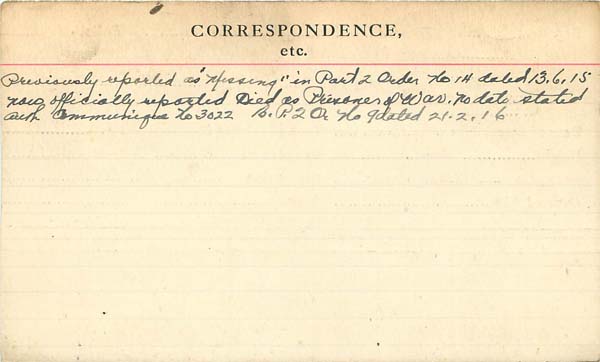 CORRESPONDENCE,
etc.
Previously reported as "Missing" in Part 2 Order No 14 dated 13.6.15
now officially reported Died as Prisoner of War. No date stated
auth Communique No 3022 D. P. 2 O. No 9 dated 21.2.16